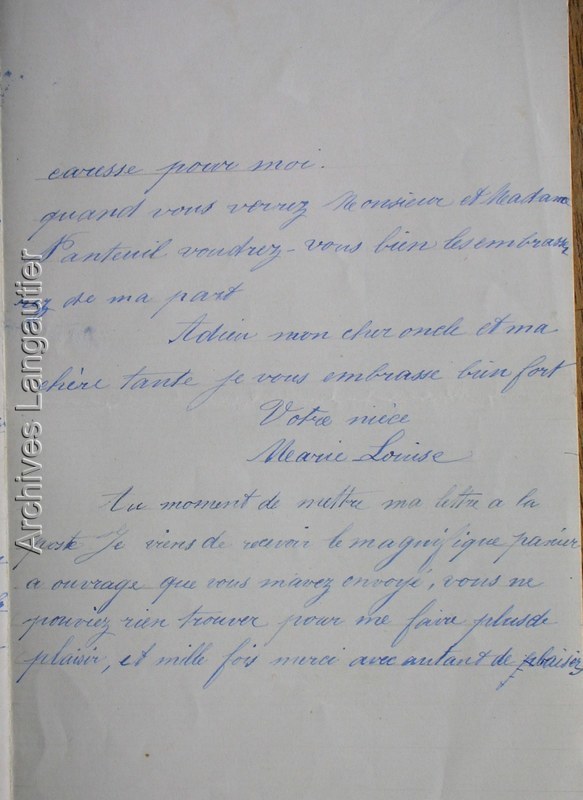 caresse pour moi.
quand vous verrez Monsieur et Madame
Panteuil voudrez-vous bien les embrasse
rez de ma part
Adieu mon cher oncle et ma
chère tante je vous embrasse bien fort
Votre nièce
Marie Louise
Au moment de mettre ma lettre a la
poste Je viens de recevoir le magnifique panier
a ouvrage que vous m'avez envoyé, vous ne
pouviez rien trouver pour me faire plus de
plaisir, et mille fois merci avec autant de baisers
Archives Langautier